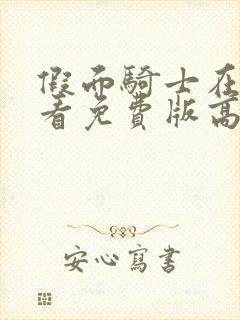 假而騎士在
看免費版高
安心寫書